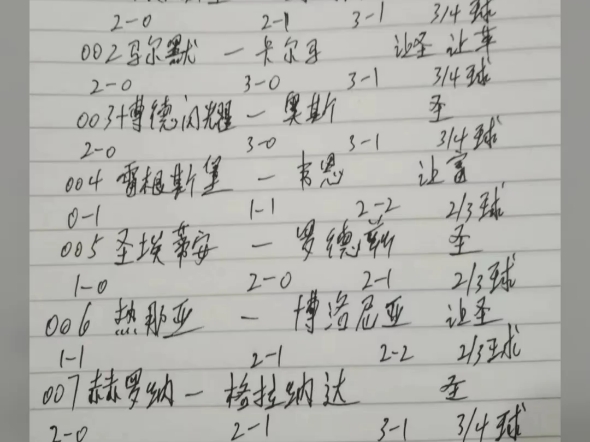 2-0 2-1 3-1 3/4球
002马尔默 — 卡尔马 让圣 让革
2-0 3-0 3-1 3/4球
003博德闪耀 — 奥斯 圣
2-0 3-0 3-1 3/4球
004 雷根斯堡 — 韦恩 让富
0-1 1-1 2-2 2/3球
005 圣埃蒂安 — 罗德斯 圣
1-0 2-0 2-1 2/3球
006 热那亚 — 博洛尼亚 让圣
1-1 2-1 2-2 2/3球
007赫罗纳 — 格拉纳达 圣
2-0 2-1 3-1 3/4球